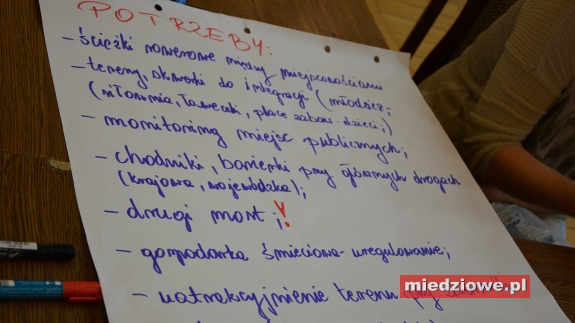 POTRZEBY:
- ścieżki rowerowe między miejscowościami
- tereny, skwerki do integracji (młodzież -
(siłownia, ławeczki, place zabaw - dzieci;)
- monitoring miejsc publicznych;
- chodniki, barierki przy głównych drogach
(krajowa, wojewódzka);
- drugi most;!
- gospodarka śmieciowa - uregulowanie;
- uatrakcyjnienie terenu przy
miedziowe.pl